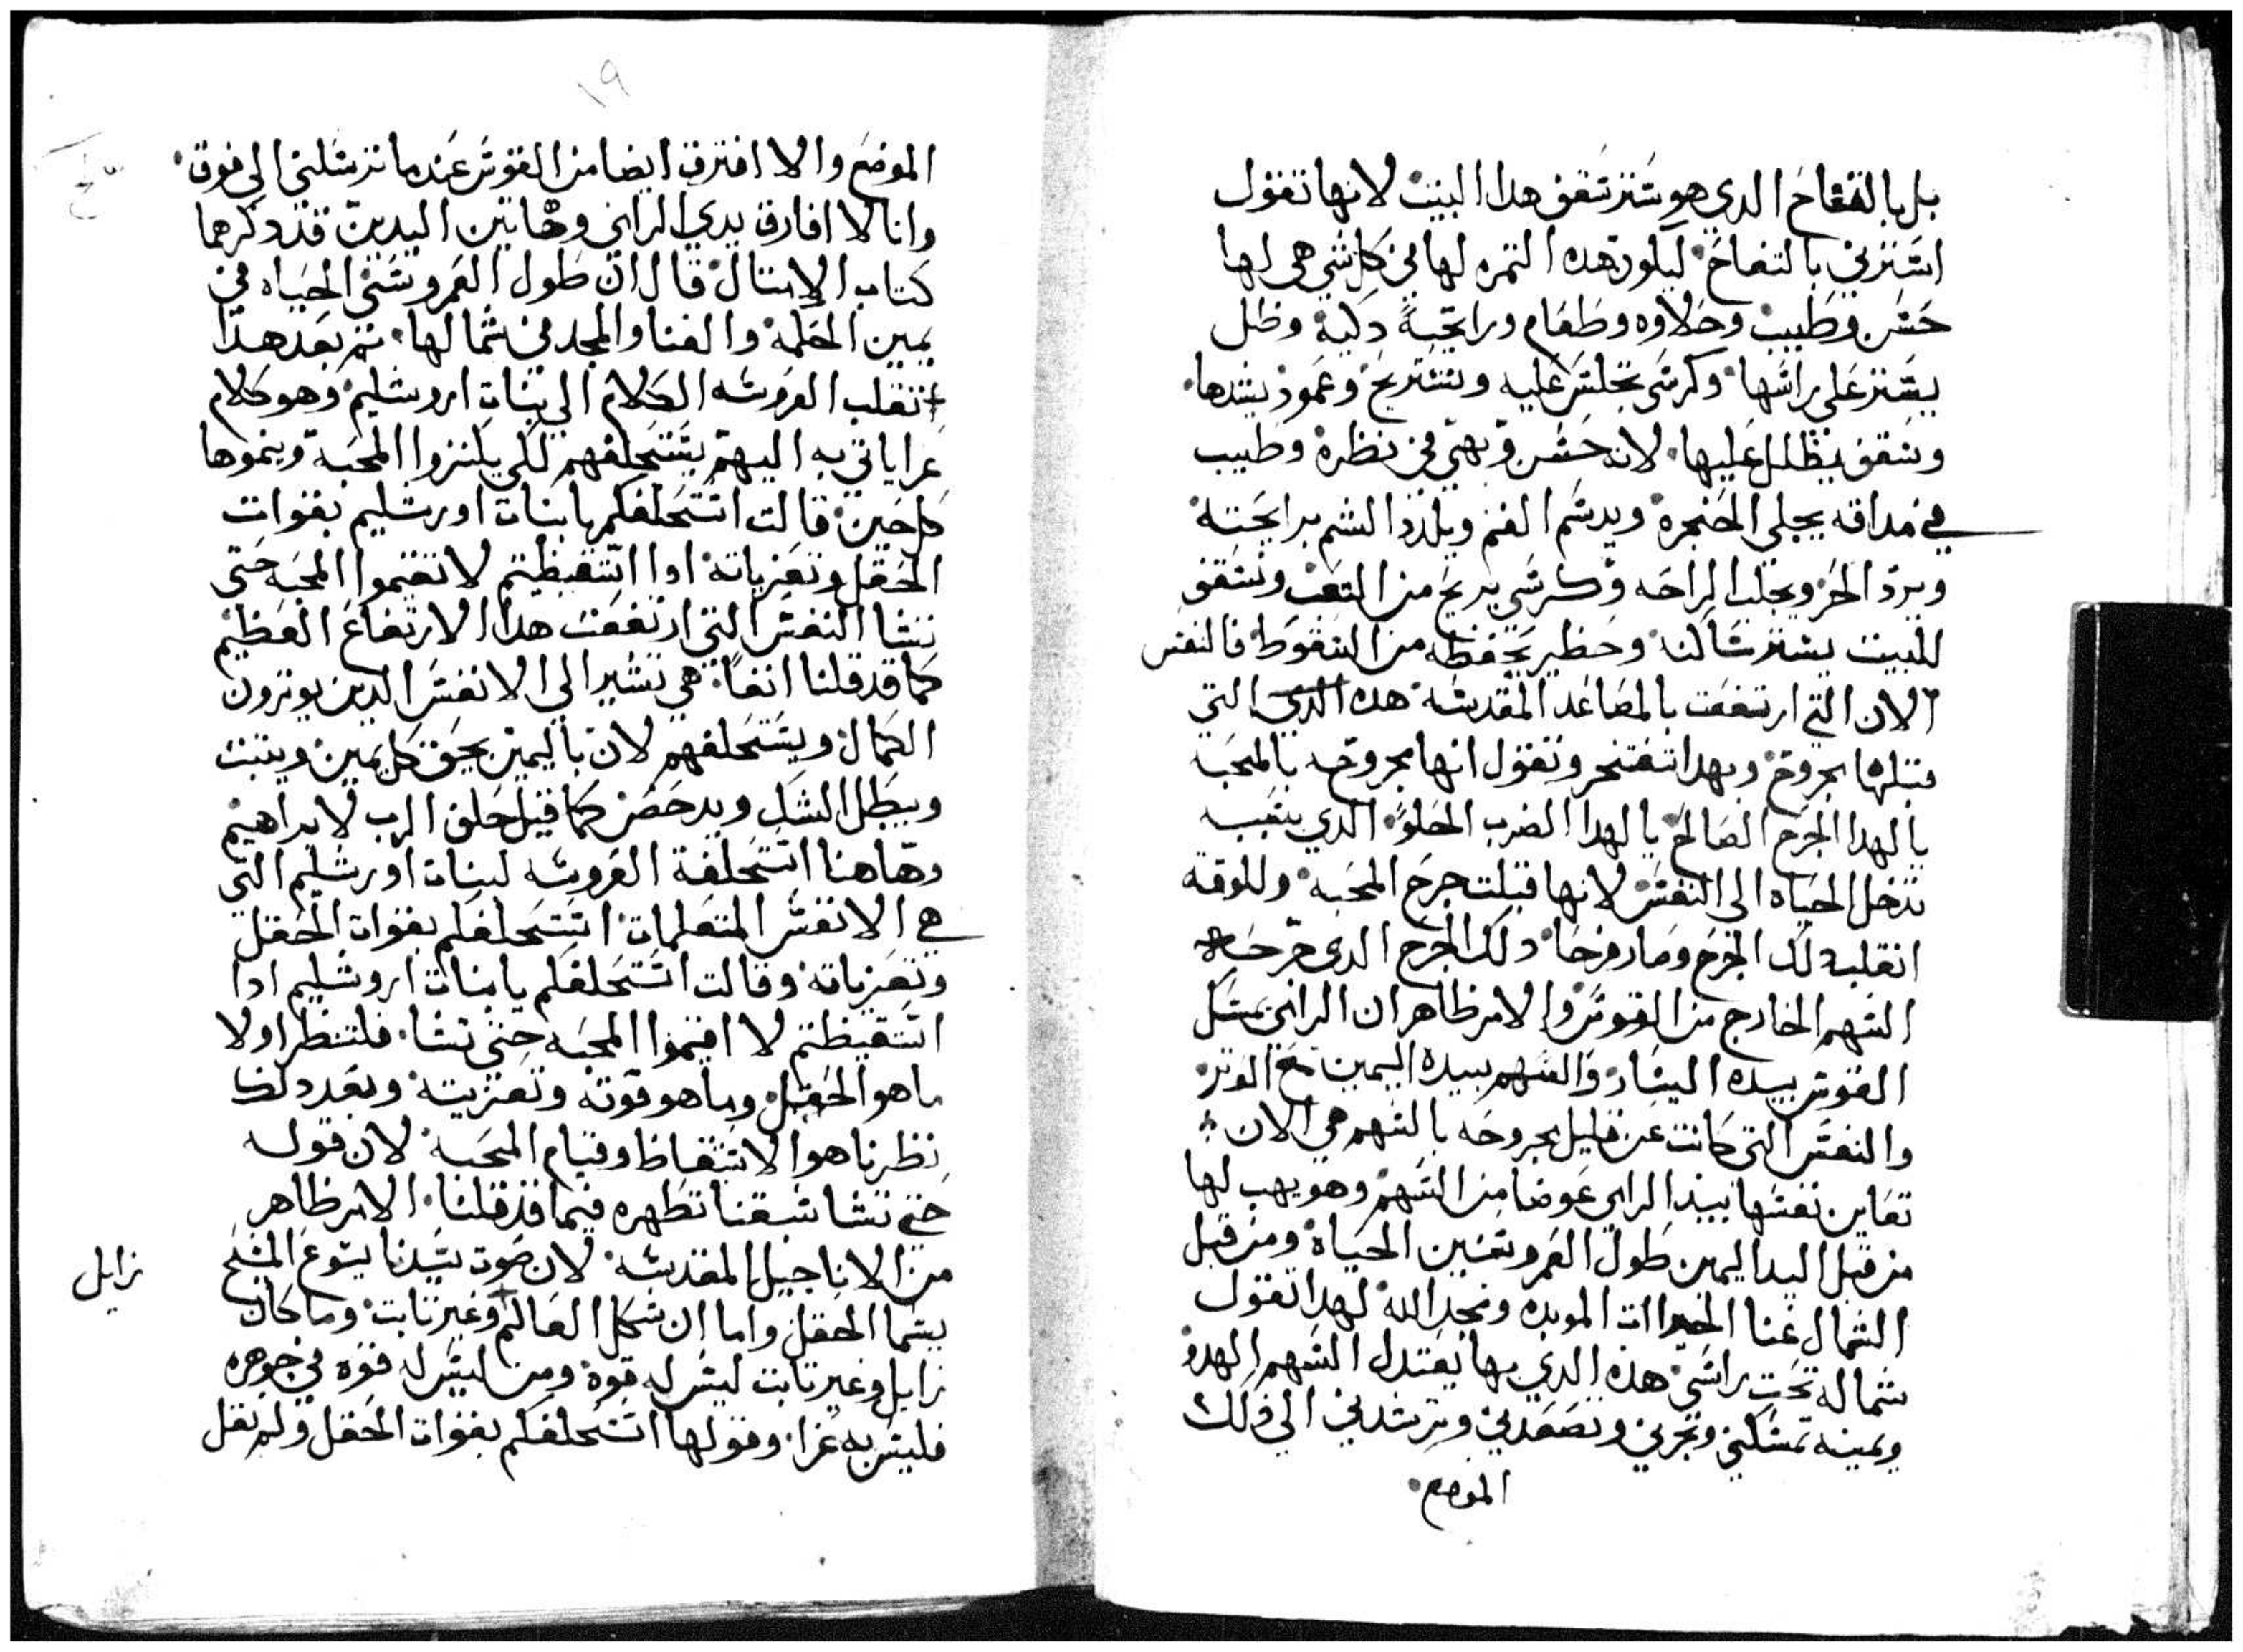 بل بالتفاح الدي هو ستر سقف هدا البيت لانها تقول
استرني بالتفاح ليكون هده التمره لها في كل شي هي لها
حسن وطيب وحلاوه وطعام ورايحة دكية وظل
يستر على راسها وكرسي تجلس عليه وتستريح وعمود يسندها
وسقف يظلل عليها لانه حسن وبهي في نظره وطيب
في مداقه يحلي الحنجره ويدسم الفم ويلدد الشم برايحته
ويرد الحر ويجلب الراحه وكرسي يريح من التعب وسقف
للبيت يستر ساكنه وحظير يحفظه من السقوط فالنفس
الان التي ارتفعت بالمصاعد المقدسه هده الدي التي
قبلها بجروح وبهدا تفتخر وتقول انها مجروحه بالمحبه
يا لهدا الجرح الصالح يا لهدا الضرب الحلو الدي بسبب
تدخل الحياه الى النفس لانها قبلت جرح المحبه وللوقت
انقلب دلك الجرح وصار فرحا دلك الجرح الدي جرحه
السهم الخارج من القوس والامر ظاهر ان الرامي يمسك
القوس بيده اليسار والسهم بيده اليمين مع الوتر
والنفس التي كانت عن قليل مجروحه بالسهم هي الان
تعاين نفسها بيد الرامي عوضا من السهم وهو يهب لها
من قبل اليد اليمين طول العمر وسنين الحياه ومن قبل
الشمال غنا الخيرات الموبده ومجد الله لهدا تقول
شماله تحت راسي هذه الدي بها يعتدل السهم الهدف
ويمينه تمسكني وتجرني وتصعدني وترشدني الى دلك
الموضع
١٩
الموضع والا افترق ايضا من القوس عند ما ترسلني الى فوق
وانا لا افارق يدي الرامي وهاتين اليدين قد دكرهما
كتاب الامتال قال ان طول العمر وسني الحياه في
يمين الحكمه والغنا والمجد في شمالها تم بعد هدا
تقلب العروسه الكلام الى بنات اروشليم وهو كلام
عزا ياتي به اليهم يستحلفهم لكي يكتروا المحبه وينموها
كل حين قالت استحلفكم يا بنات اورشليم بقوات
الحقل وتعزياته ادا استيقظتم لا تقيموا المحبه حتى
تشا النفس التي ارتفعت هدا الارتفاع العظيم
كما قد قلنا انفا هي تشير الى الانفس الدين يوترون
الكمال ويستحلفهم لان باليمين يحق كل يمين ويتبت
ويبطل الشك ويدحض كما قيل حلف الرب لابراهيم
وهاهنا استحلفة العروسه لبنات اورشليم التي
هي الانفس المتعلمات استحلفكم بقوات الحقل
وتعزياته وقالت استحلفكم يا بنات اروشليم ادا
استيقظتم لا اقيموا المحبه حتى تشا فلننظر اولا
ما هو الحقل وما هو قوته وتعزيته وبعد دلك
نظر ما هو الاستيقاظ وقيام المحبه لان قوله
حتى تشا سبقنا نظهره فيما قد قلنا الامر ظاهر
من الاناجيل المقدسه لان صوت سيدنا يسوع المسيح
يسما الحقل واما ان شكل العالم وغير تابت وما كان
زايل
زايل وغير تابت ليس له قوه ومن ليس له قوه في جوهره
فليس به عزا وقولها استحلفكم بقوات الحقل ولم تقل